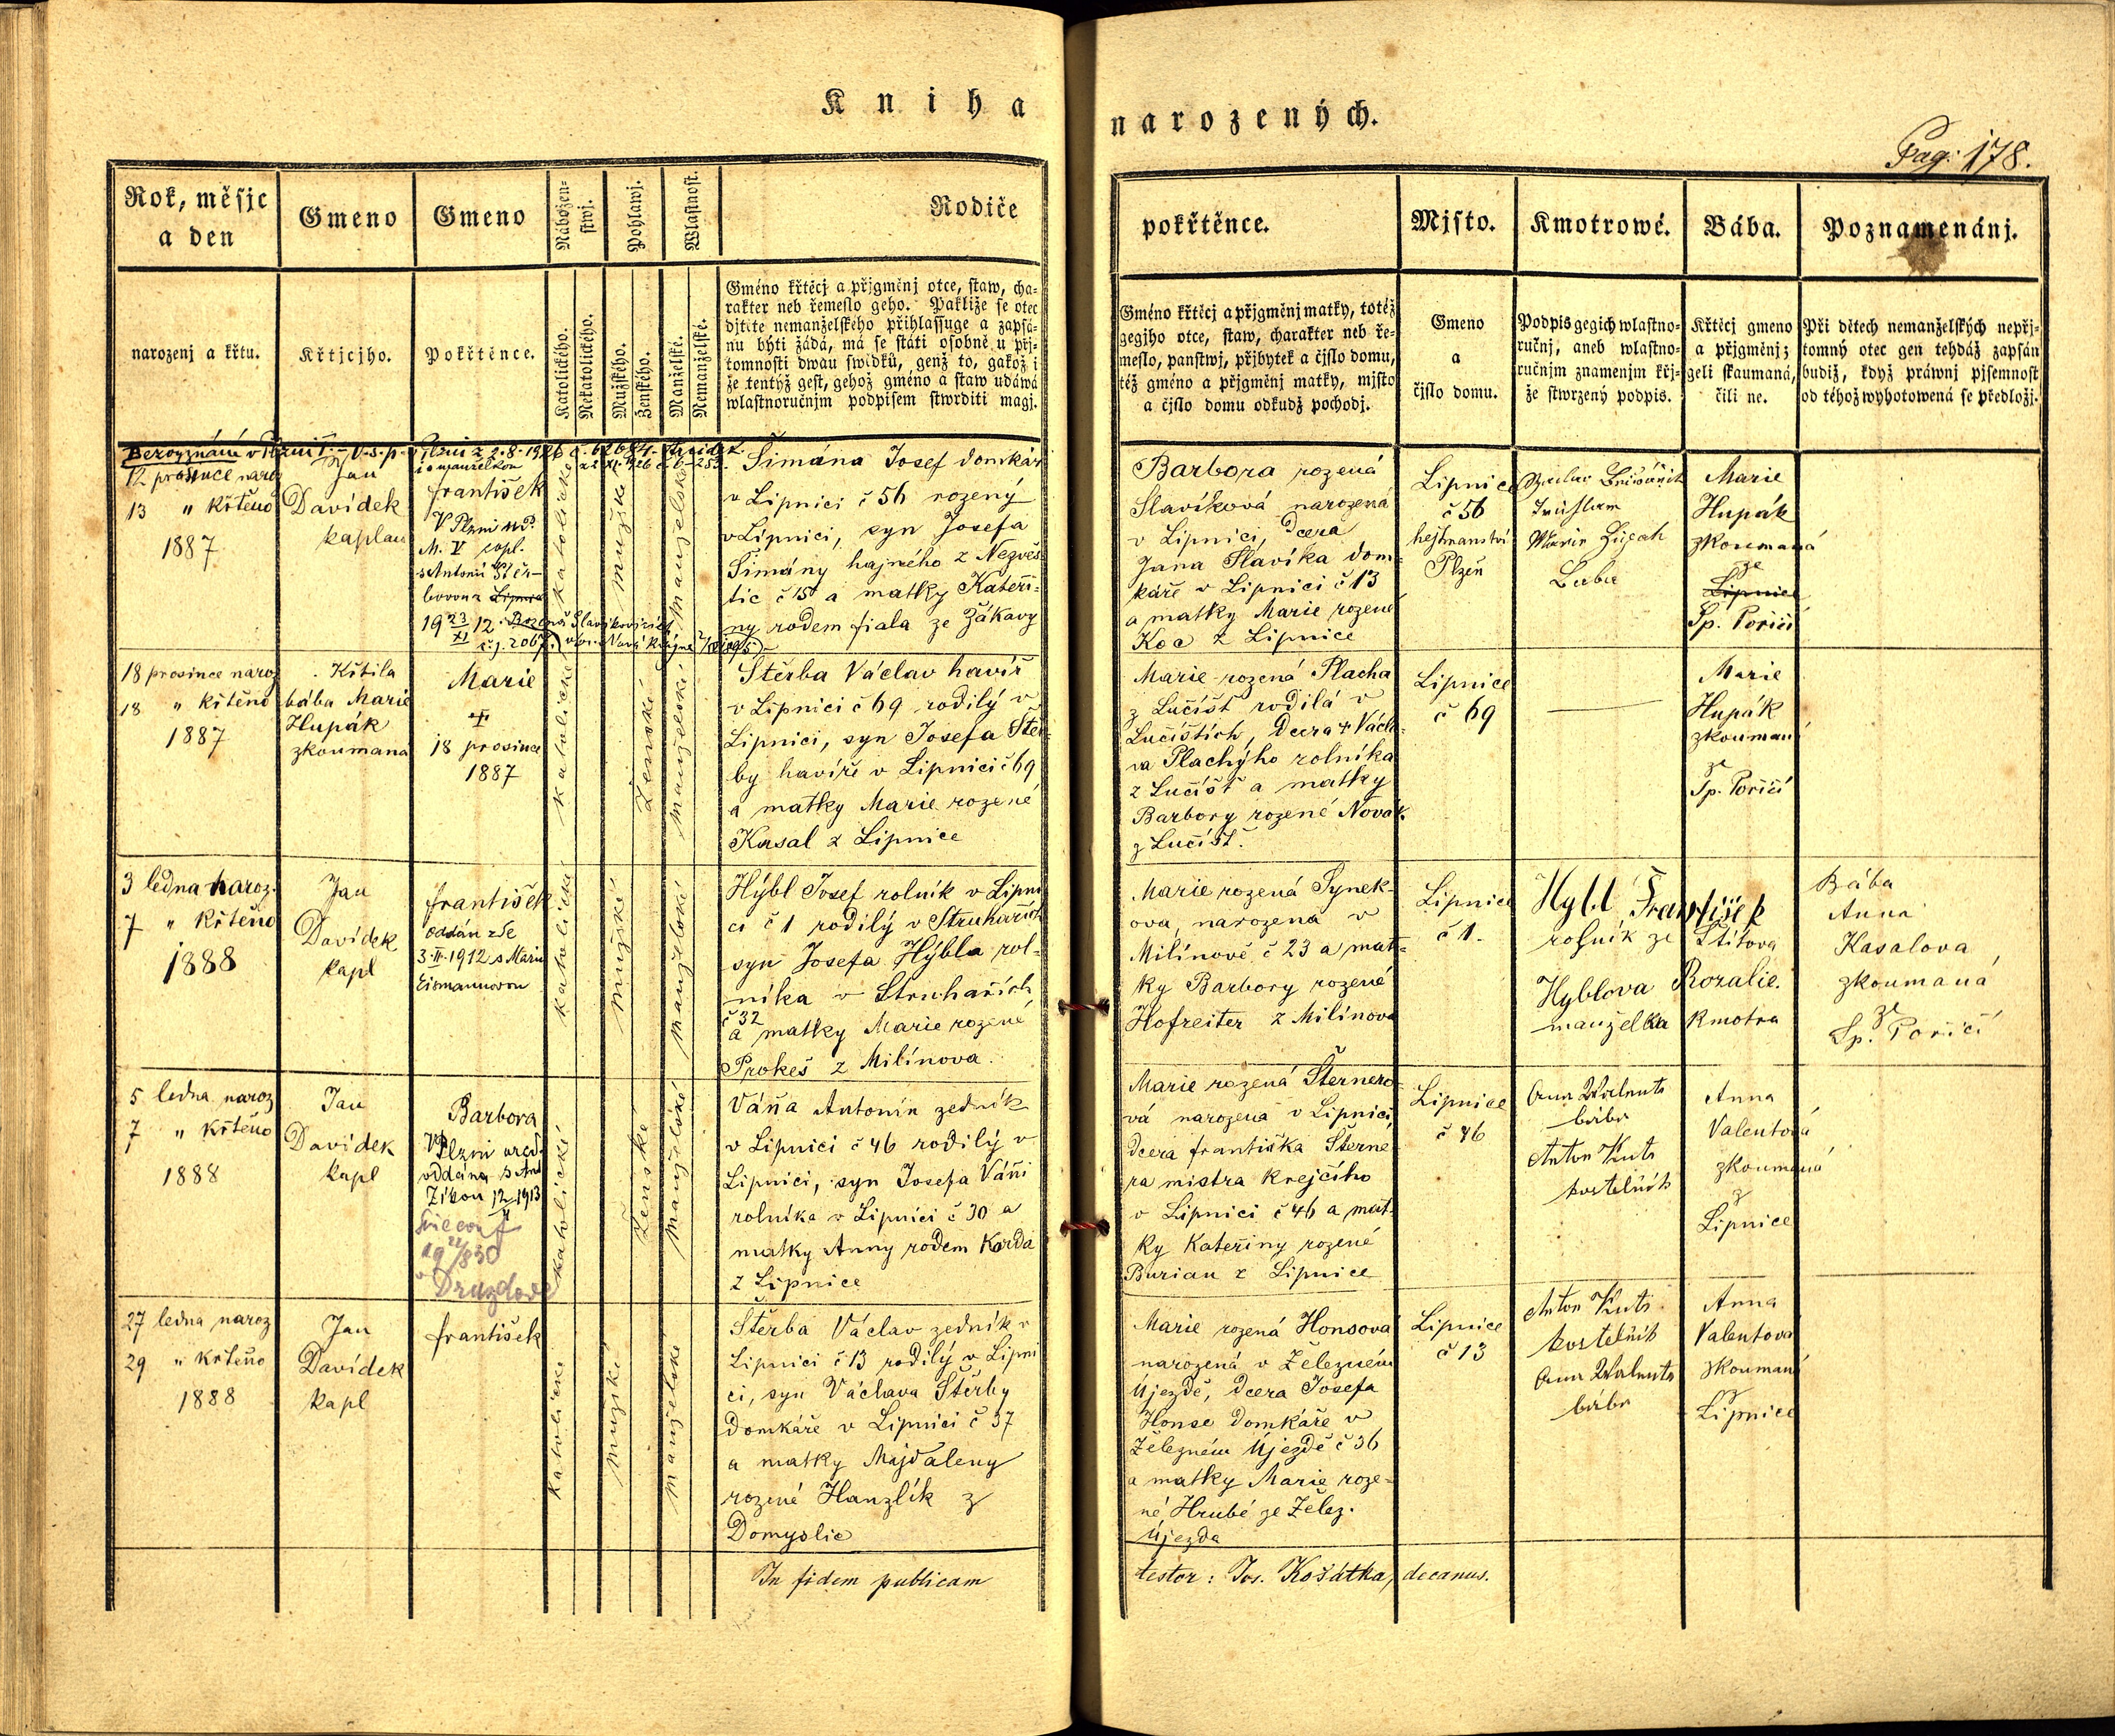 Kniha
narozených.
Pag: 178.
Rok, měsjc
a den
Gmeno
Gmeno
Nábožen-
stwj.
Pohlawj.
Wlastnost.
Rodiče
pokřtěnce.
Mjsto.
Kmotrowé.
Bába.
Poznamenánj.
narozenj a křtu.
Křtjcjho.
Pokřtěnce.
Katolického.
Nekatolického.
Mužského.
Ženského.
Manželské.
Nemanželské.
Gméno křtěcj a přjgměnj otce, staw, cha-
rakter neb řemeslo geho. Pakliže se otec
djtěte nemanželského přihlassuge a zapsá-
nu býti žádá, má se státi osobně u přj-
tomnosti dwau swědků, genž to, gakož i
že tentýž gest, gehož gméno a staw udáwá
wlastnoručnjm podpisem stwrditi magj.
Gméno křtěcj a přjgměnj matky, totéž
gegjho otce, staw, charakter neb ře-
meslo, panstwj, přjbytek a čjslo domu,
též gméno a přjgměnj matky, mjsto
a čjslo domu odkudž pochodj.
Gmeno
a
čjslo domu.
Podpis gegich wlastno-
ručnj, aneb wlastno-
ručnjm znamenjm křj-
že stwrzený podpis.
Křtěcj gmeno
a přjgměnj;
geli skaumaná,
čili ne.
Při dětech nemanželských nepřj-
tomný otec gen tehdáž zapsán
budiž, když práwnj pjsemnost
od téhož wyhotowená se předložj.
12 prosince naroz
13 " křtěno
1887
Jan
Davídek
kaplan
i s manželkou
František
V Plzni
M. V. copl.
s Antonií Štěr-
bovou z Lipnice
katolické
mužské
manželské
Šimána Josef domkář
v Lipnici č 56 rozený
v Lipnici, syn Josefa
Šimány hajného z Nezvěs
tic č 15 a matky Kateři-
ny rodem fiala ze Žákavy
Barbora rozená
Slavíková narozená
v Lipnici, dcera
Jana Slavíka dom-
káře v Lipnici č 13
a matky Marie rozené
Koc z Lipnice
Lipnice
č 56
hejtmanství
Plzeň
Marie
Hupák
zkoumaná
ze
Lipnice
Sp. Poříčí
18 prosince naroz
18 " křtěno
1887
Křtila
bába Marie
Hupák
zkoumaná
Marie
18 prosince
1887
katolické
ženské
manželské
Štěrba Václav havíř
v Lipnici č 69 rodilý v
Lipnici, syn Josefa Štěr-
by havíře v Lipnici č 69
a matky Marie rozené
Kasal z Lipnice
Marie rozená Placha
z Lučišt rodilá v
Lučištích, Dcera + Václa-
va Plachýho rolníka
z Lučišt a matky
Barbory rozené Novak.
z Lučišt.
Lipnice
č 69
Marie
Hupák
zkouman
ze
Sp. Poříčí
3 ledna naroz.
7 " křtěno
1888
Jan
Davídek
kapl
František
oddán zde
3. II. 1912 s Marií
Eismannovou
katolické
mužské
manželské
Hýbl Josef rolník v Lipni
ci č 1 rodilý v Struhařích
syn Josefa Hýbla rol-
níka v Struhařích
č 32
a matky Marie rozené
Prokeš z Milínova.
Marie rozená Synek-
ova, narozena v
Milínově č 23 a mat-
ky Barbory rozené
Hofreiter z Milínova
Lipnice
č 1.
Hybl František
rolník ze Štítova
Hyblova Rozalie.
manželka kmotra
Bába
Anna
Kasalova
zkoumaná
ze
Sp. Poříčí
5 ledna naroz
7 " křtěno
1888
Jan
Davídek
kapl
Barbora
V Plzni
oddána s Ant
Zíkou
katolické
ženské
manželské
Váňa Antonín zedník
v Lipnici č 46 rodilý v
Lipnici, syn Josefa Váni
rolníka v Lipnici č 30 a
matky Anny rodem Korda
z Lipnice
Marie rozená Šternero-
vá narozena v Lipnici
dcera františka Šterne
ra mistra krejčího
v Lipnici č 46 a mat-
ky Kateřiny rozené
Burian z Lipnice
Lipnice
č 46
Anna Walenta
bába
Anton Kuts
kostelník
Anna
Valentová
zkoumaná
z
Lipnice
27 ledna naroz
29 " křtěno
1888
Jan
Davídek
kapl
františek
katolické
mužské
manželské
Štěrba Václav zedník v
Lipnici č 13 rodilý v Lipni
ci, syn Václava Štěrby
domkáře v Lipnici č 37
a matky Majdaleny
rozené Hanzlík z
Domyslic
Marie rozená Honsova
narozená v Železném
Újezdě, dcera Josefa
Honse domkáře v
Železném Újezdě č 36
a matky Marie roze-
né Hrubé ze Želez.
Újezda
Lipnice
č 13
Anton Kuts
kostelník
Anna Walenta
bába
Anna
Valentova
zkoumaná
z
Lipnice
In fidem publicam
testor: Jos. Košátka, decanus.